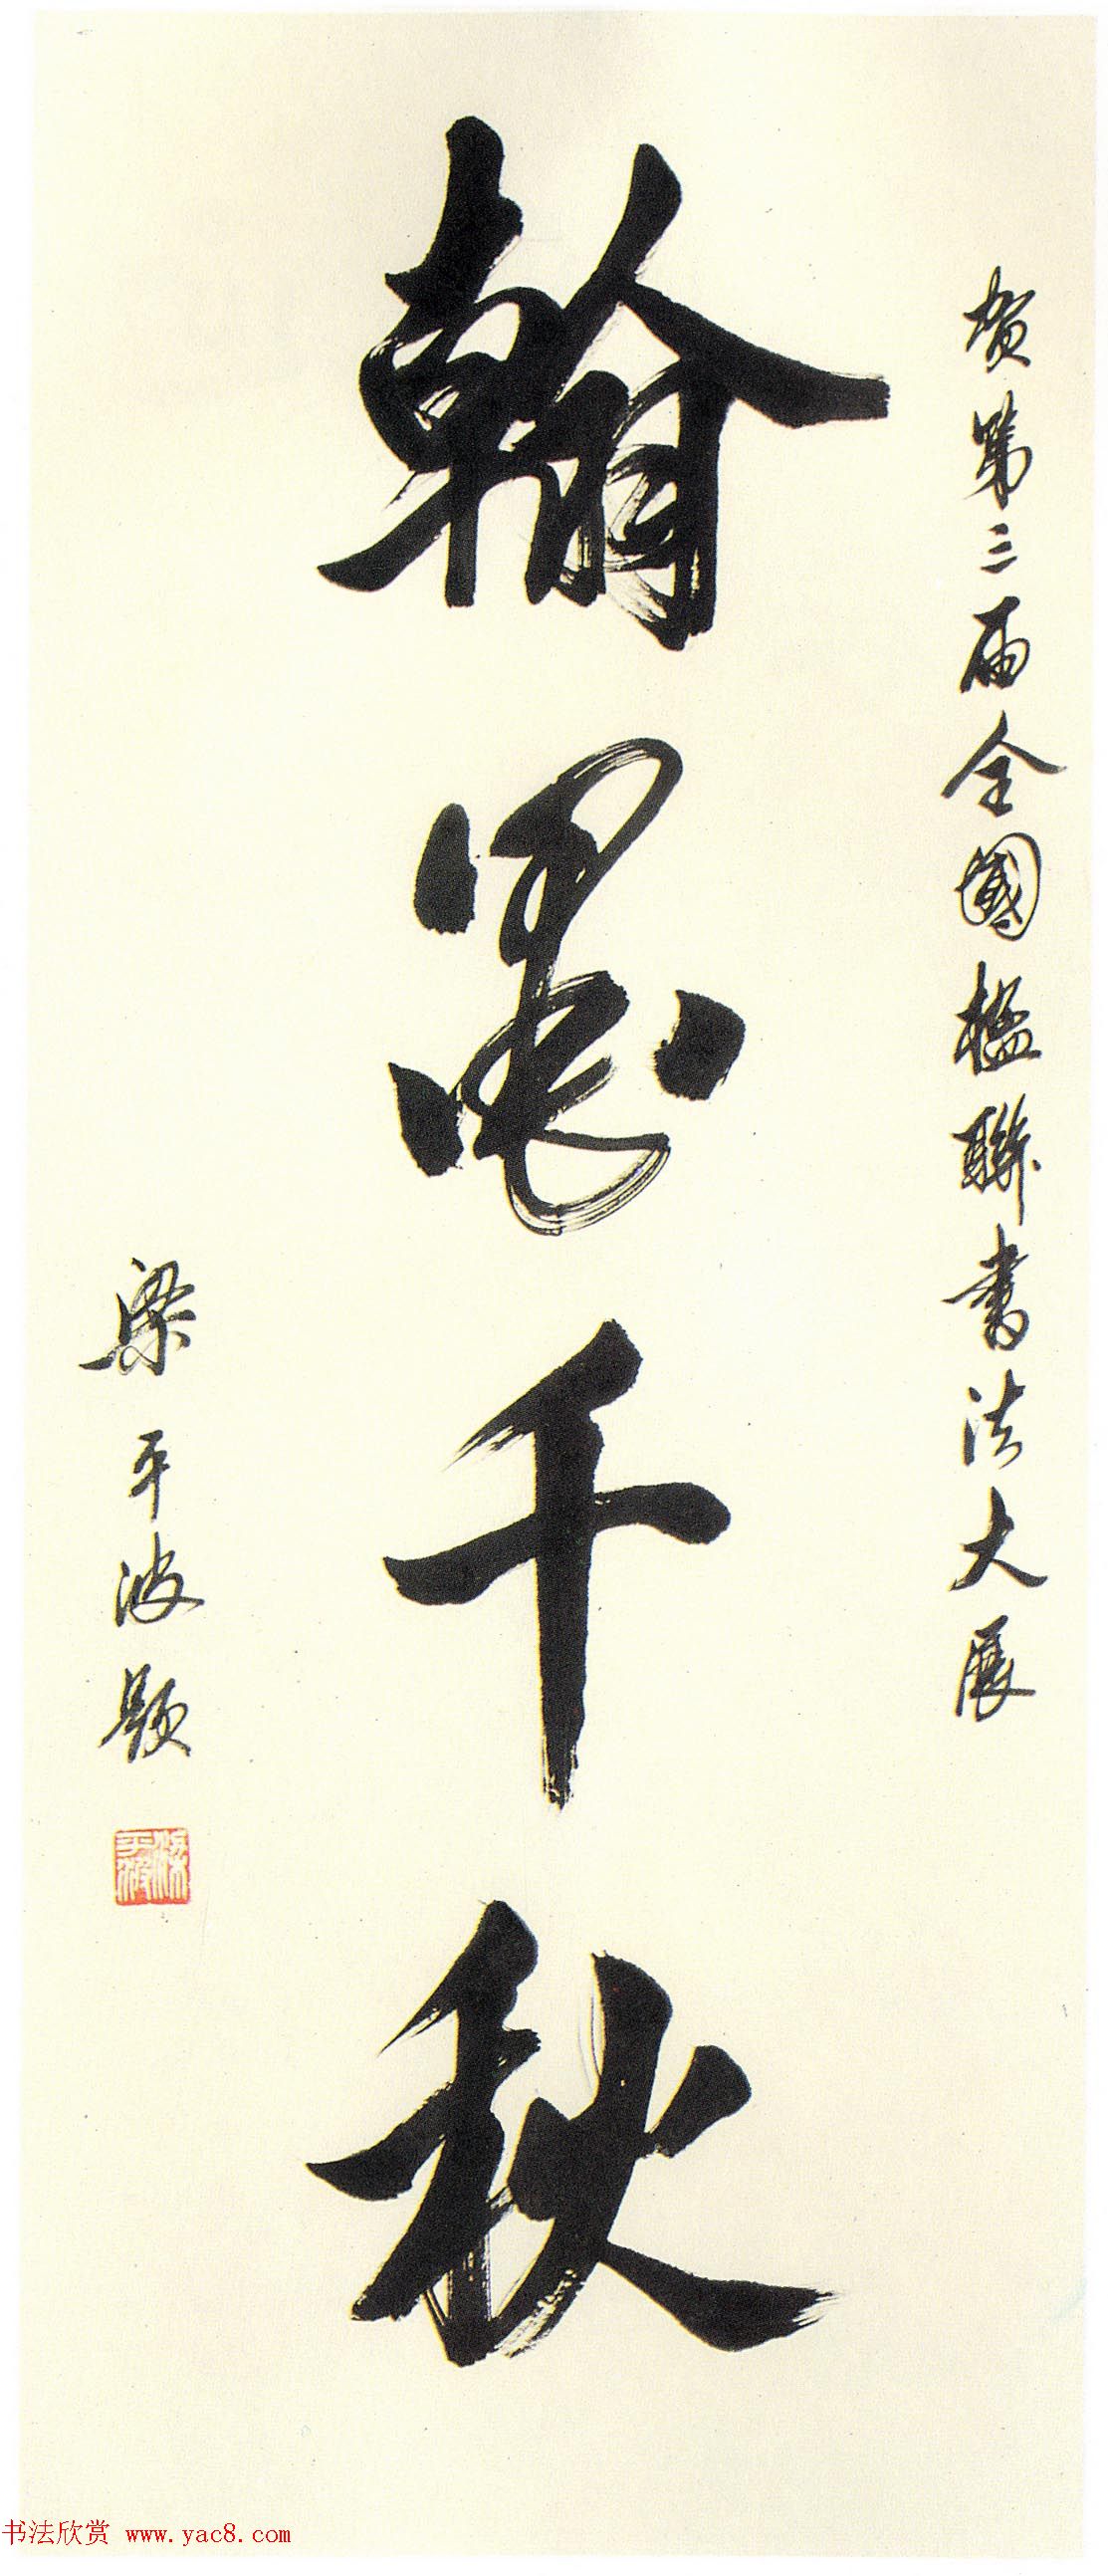 賀第三届全國楹聯書法大展
翰墨千秋
梁平波题
梁平波
书法欣赏 www.yac8.com